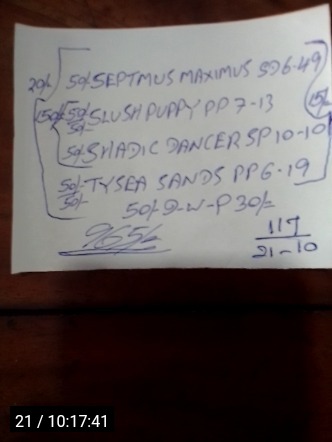 20/- 50/- SEPTMUS MAXIMUS SD 6-49
150/- 50/- 50/- SLUSH PUPPY PP 7-13 15/-
50/- SHADIC DANCER SP 10-10
50/- 50/- TYSEA SANDS PP 6-19
50/- D-W-P 30/-
965/- 117
21-10
21 / 10:17:41